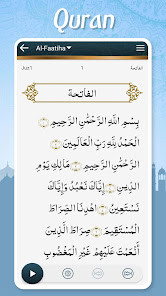 Quran
Al-Faatiha
Juz 1
1
الفاتحة
الفاتحة
بِسْمِ اللَّهِ الرَّحْمَٰنِ الرَّحِيمِ
الْحَمْدُ لِلَّهِ رَبِّ الْعَالَمِينَ
الرَّحْمَٰنِ الرَّحِيمِ مَالِكِ يَوْمِ
الدِّينِ إِيَّاكَ نَعْبُدُ وَإِيَّاكَ
نَسْتَعِينُ اهْدِنَا الصِّرَاطَ
الْمُسْتَقِيمَ صِرَاطَ الَّذِينَ
أَنْعَمْتَ عَلَيْهِمْ غَيْرِ الْمَغْضُوبِ